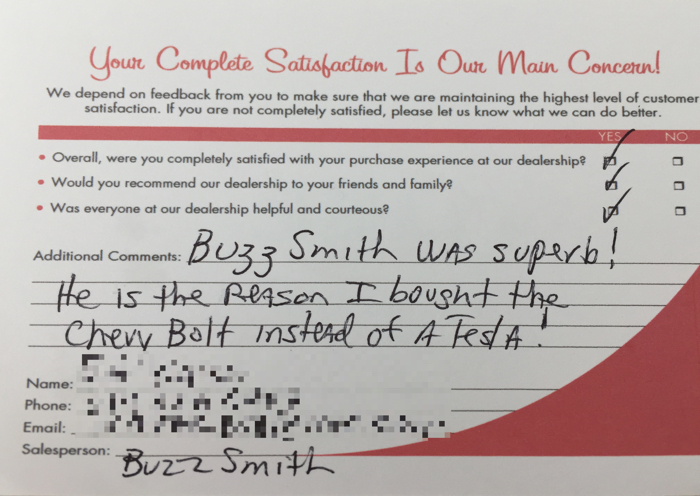 Your Complete Satisfaction Is Our Main Concern!
We depend on feedback from you to make sure that we are maintaining the highest level of customer
satisfaction. If you are not completely satisfied, please let us know what we can do better.
YES NO
• Overall, were you completely satisfied with your purchase experience at our dealership?
• Would you recommend our dealership to your friends and family?
• Was everyone at our dealership helpful and courteous?
Additional Comments: Buzz Smith was superb!
He is the Reason I bought the
Chevy Bolt instead of A Tesla!
Name:
Phone:
Email:
Salesperson: Buzz Smith